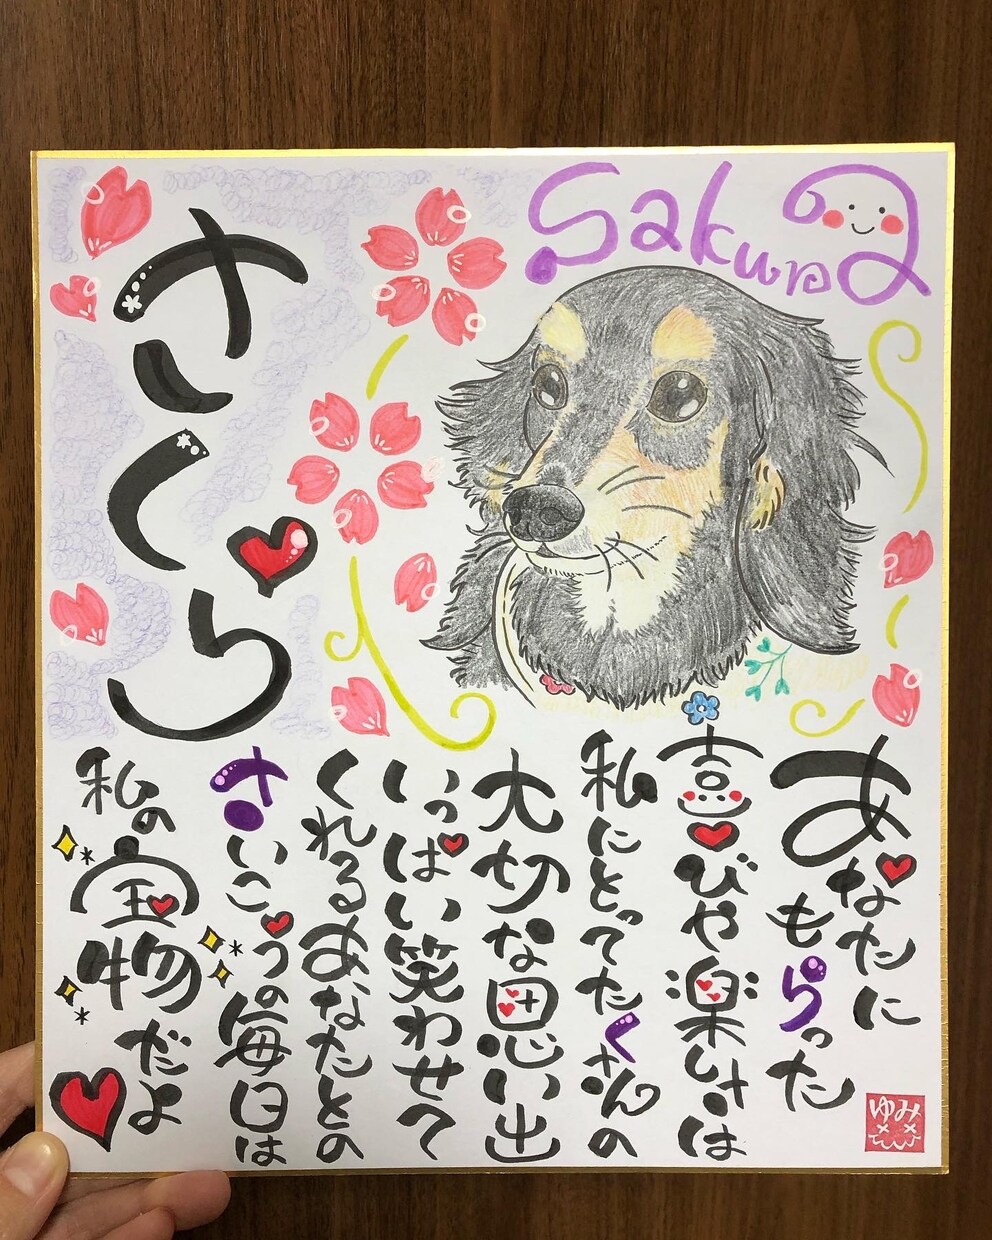 Sakura
さくら
あなたに
もらった
喜びや楽しさは
私にとってたくさんの
大切な思い出
いっぱい笑わせて
くれるあなたとの
さいこうの毎日は
私の宝物だよ
ゆみ